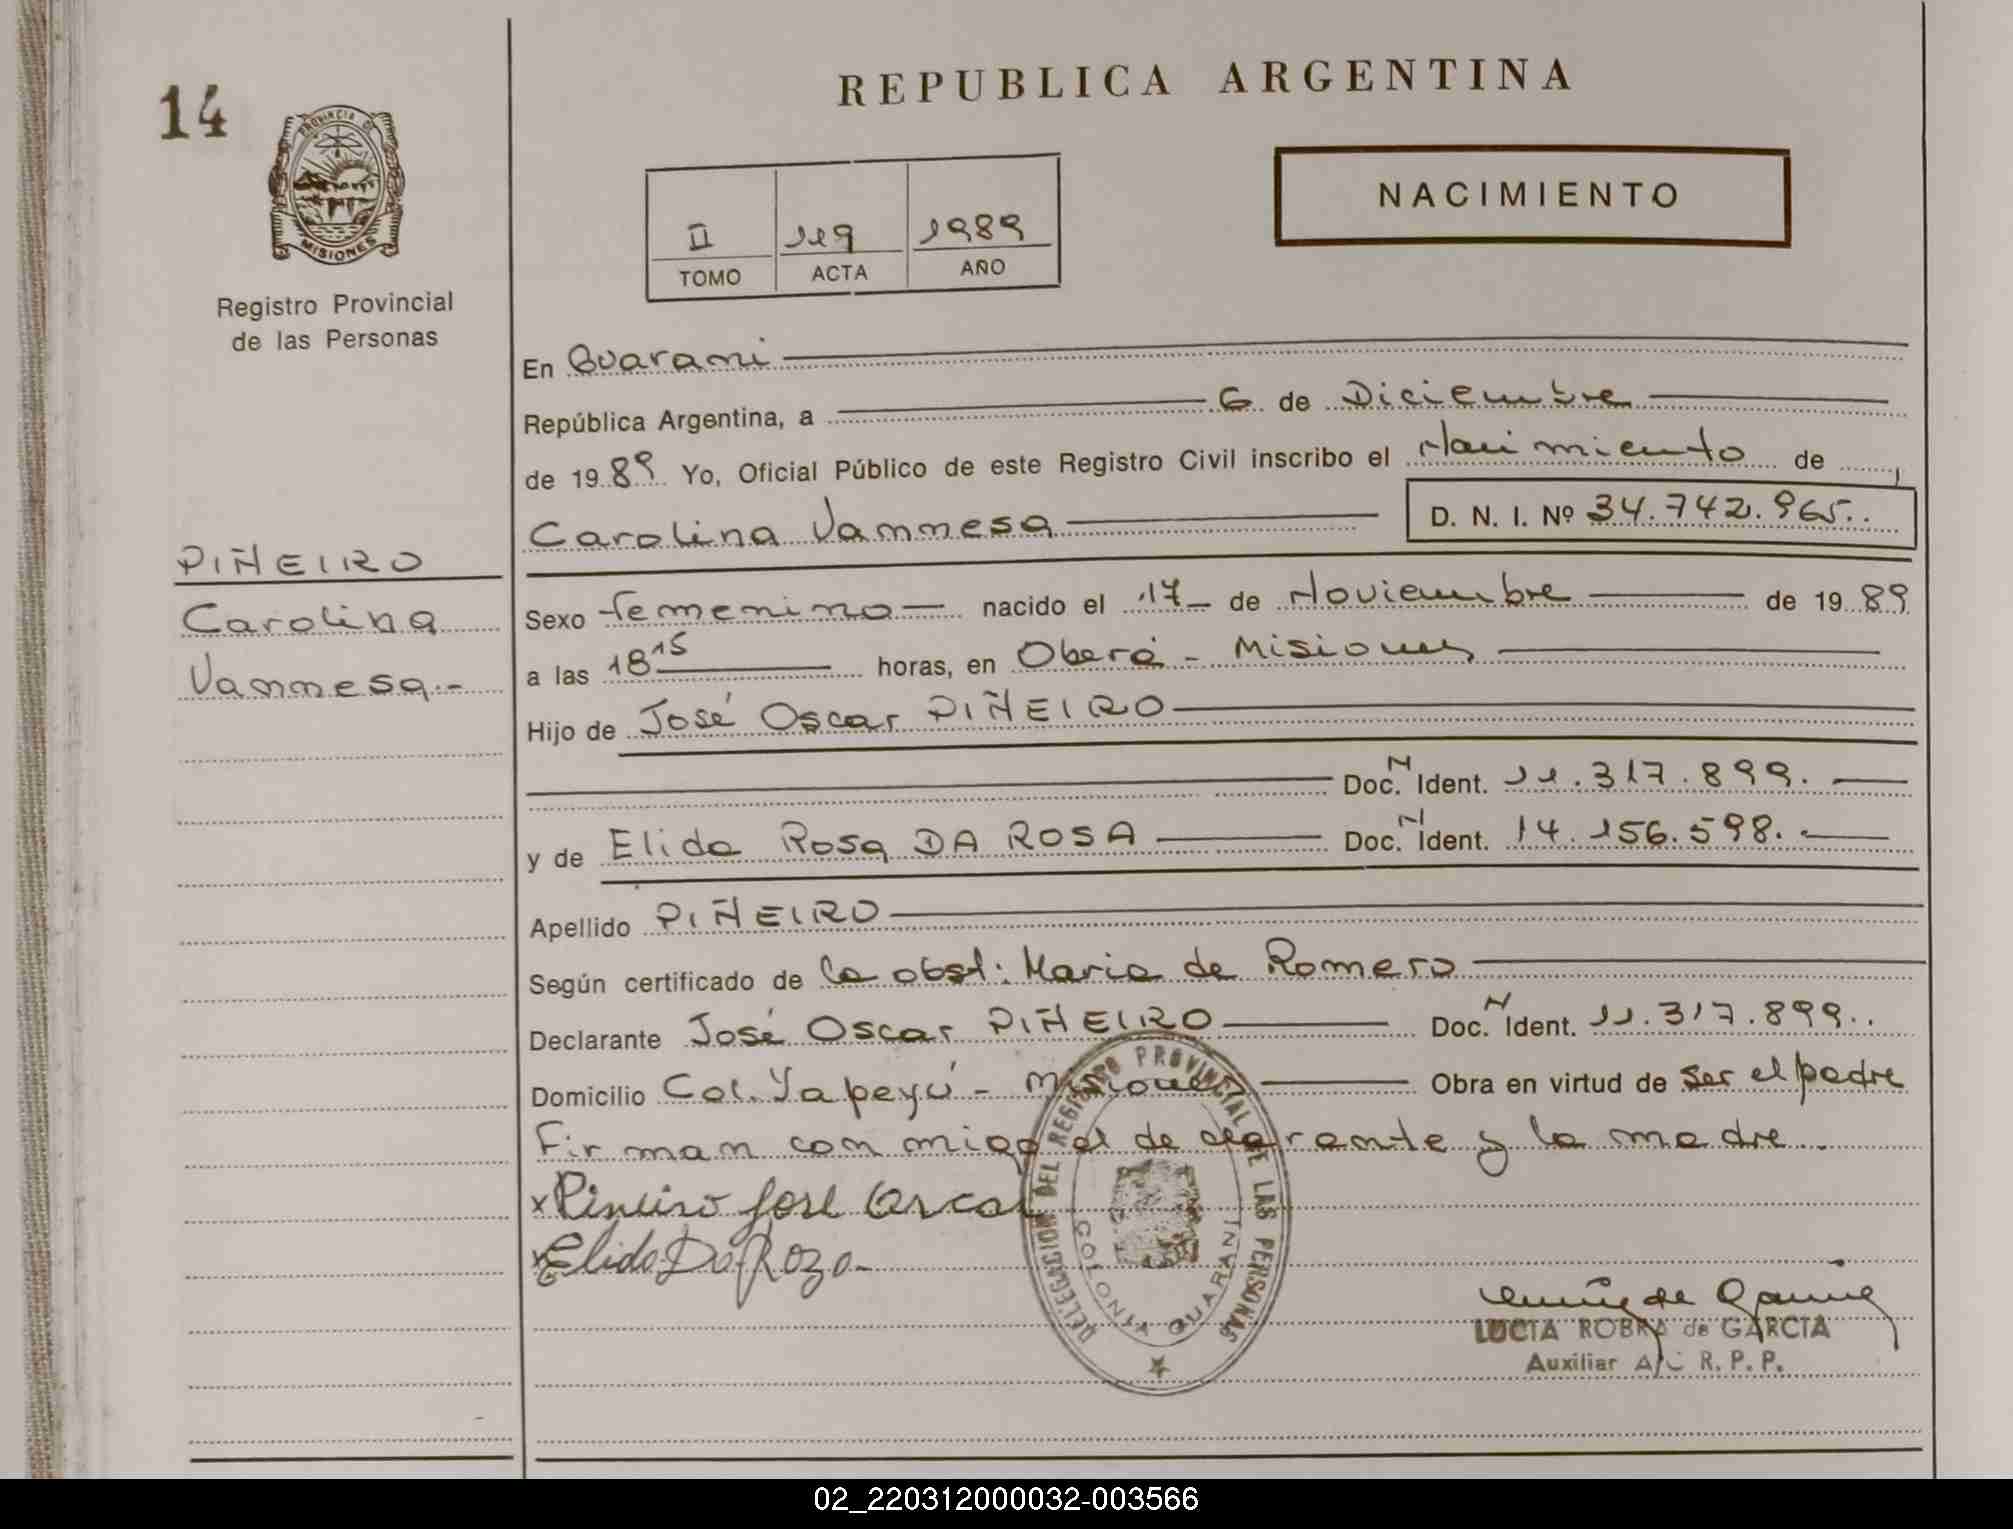 REPUBLICA ARGENTINA
14
PROVINCIA DE
MISIONES
Registro Provincial
de las Personas
II 119 1989
TOMO ACTA AÑO
NACIMIENTO
En Guarani
República Argentina, a 6 de Diciembre
de 1989 Yo, Oficial Público de este Registro Civil inscribo el Nacimiento de
Carolina Vannesa D. N. I. Nº 34.742.965.
PIÑEIRO
Carolina
Vannesa.-
Sexo femenino nacido el 17 de Noviembre de 1989
a las 18 15 horas, en Oberá - Misiones
Hijo de José Oscar PIÑEIRO
Doc. N Ident. 11.317.899.
y de Elida Rosa DA ROSA Doc. N Ident. 14.156.598.
Apellido PIÑEIRO
Según certificado de la obst: Maria de Romero
Declarante José Oscar PIÑEIRO Doc. N Ident. 11.317.899.
Domicilio Col. Yapeyú - Misiones Obra en virtud de ser el padre
Firman con migo el de clarante y la madre.
x Piñeiro José Oscar
x Elida Da Roza
DELEGACION DEL REGISTRO PROVINCIAL DE LAS PERSONAS
COLONIA GUARANI
LUCIA ROBRA de GARCIA
Auxiliar A/C R. P. P.
02_220312000032-003566